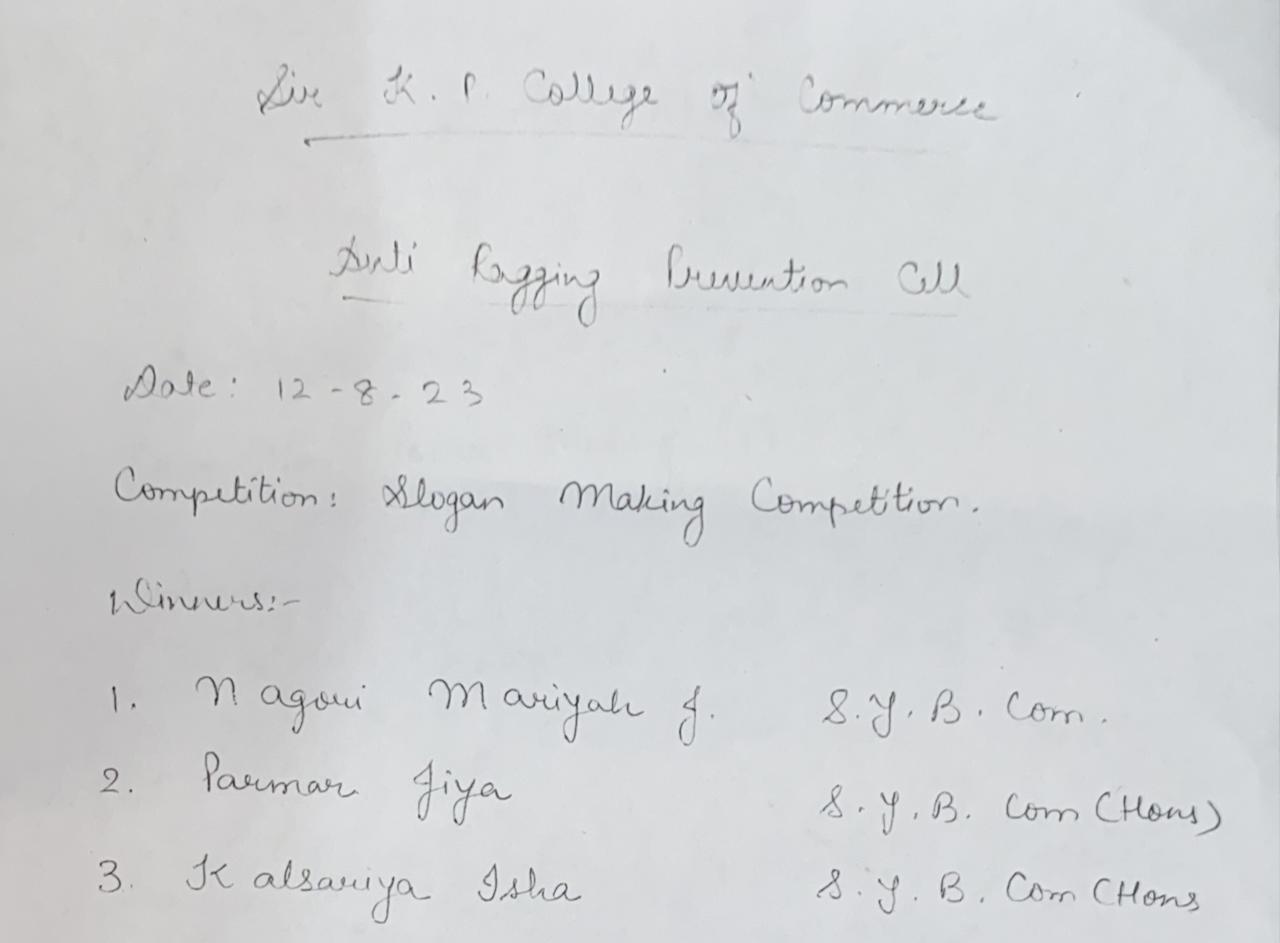 Sir K. P. College of Commerce
Anti Ragging Prevention Cell
Date: 12-8-23
Competition: Slogan Making Competition.
Winners:-
1. Nagori Mariyah J. S.Y.B.Com.
2. Parmar Jiya S.Y.B. Com (Hons)
3. Kalsariya Isha S.Y.B. Com (Hons